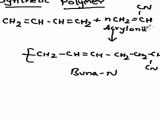 Synthetic Polymer
CH₂=CH-CH=CH₂ + n CH₂=CH
CN
Acryloni
[CH₂-CH=CH-CH₂-CH₂-CH
CN
Buna-N